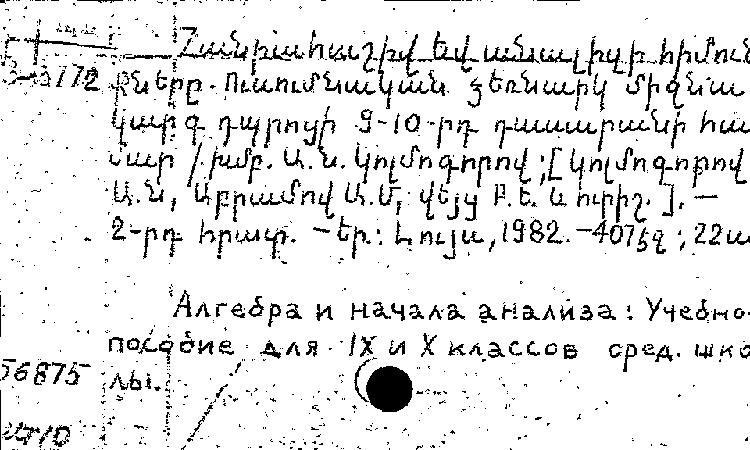 Հանրահաշիվ եվ անալիզի հիմուն
քները. Ուսումնական ձեռնարկ միջնա
կարգ դպրոցի 9-10-րդ դասարանի հա
մար / խմբ. Ա.Ն. Կոլմոգորով ; [Կոլմոգորով
Ա.Ն, Աբրամով Ա.Մ, Վեյց Բ.Ե. և ուրիշ.]. —
2-րդ հրատ. — Եր.: Լույս, 1982. — 407 էջ ; 22ս
Алгебра и начала анализа : Учебно-
пособие для IX и X классов сред. шко
лы.
56875